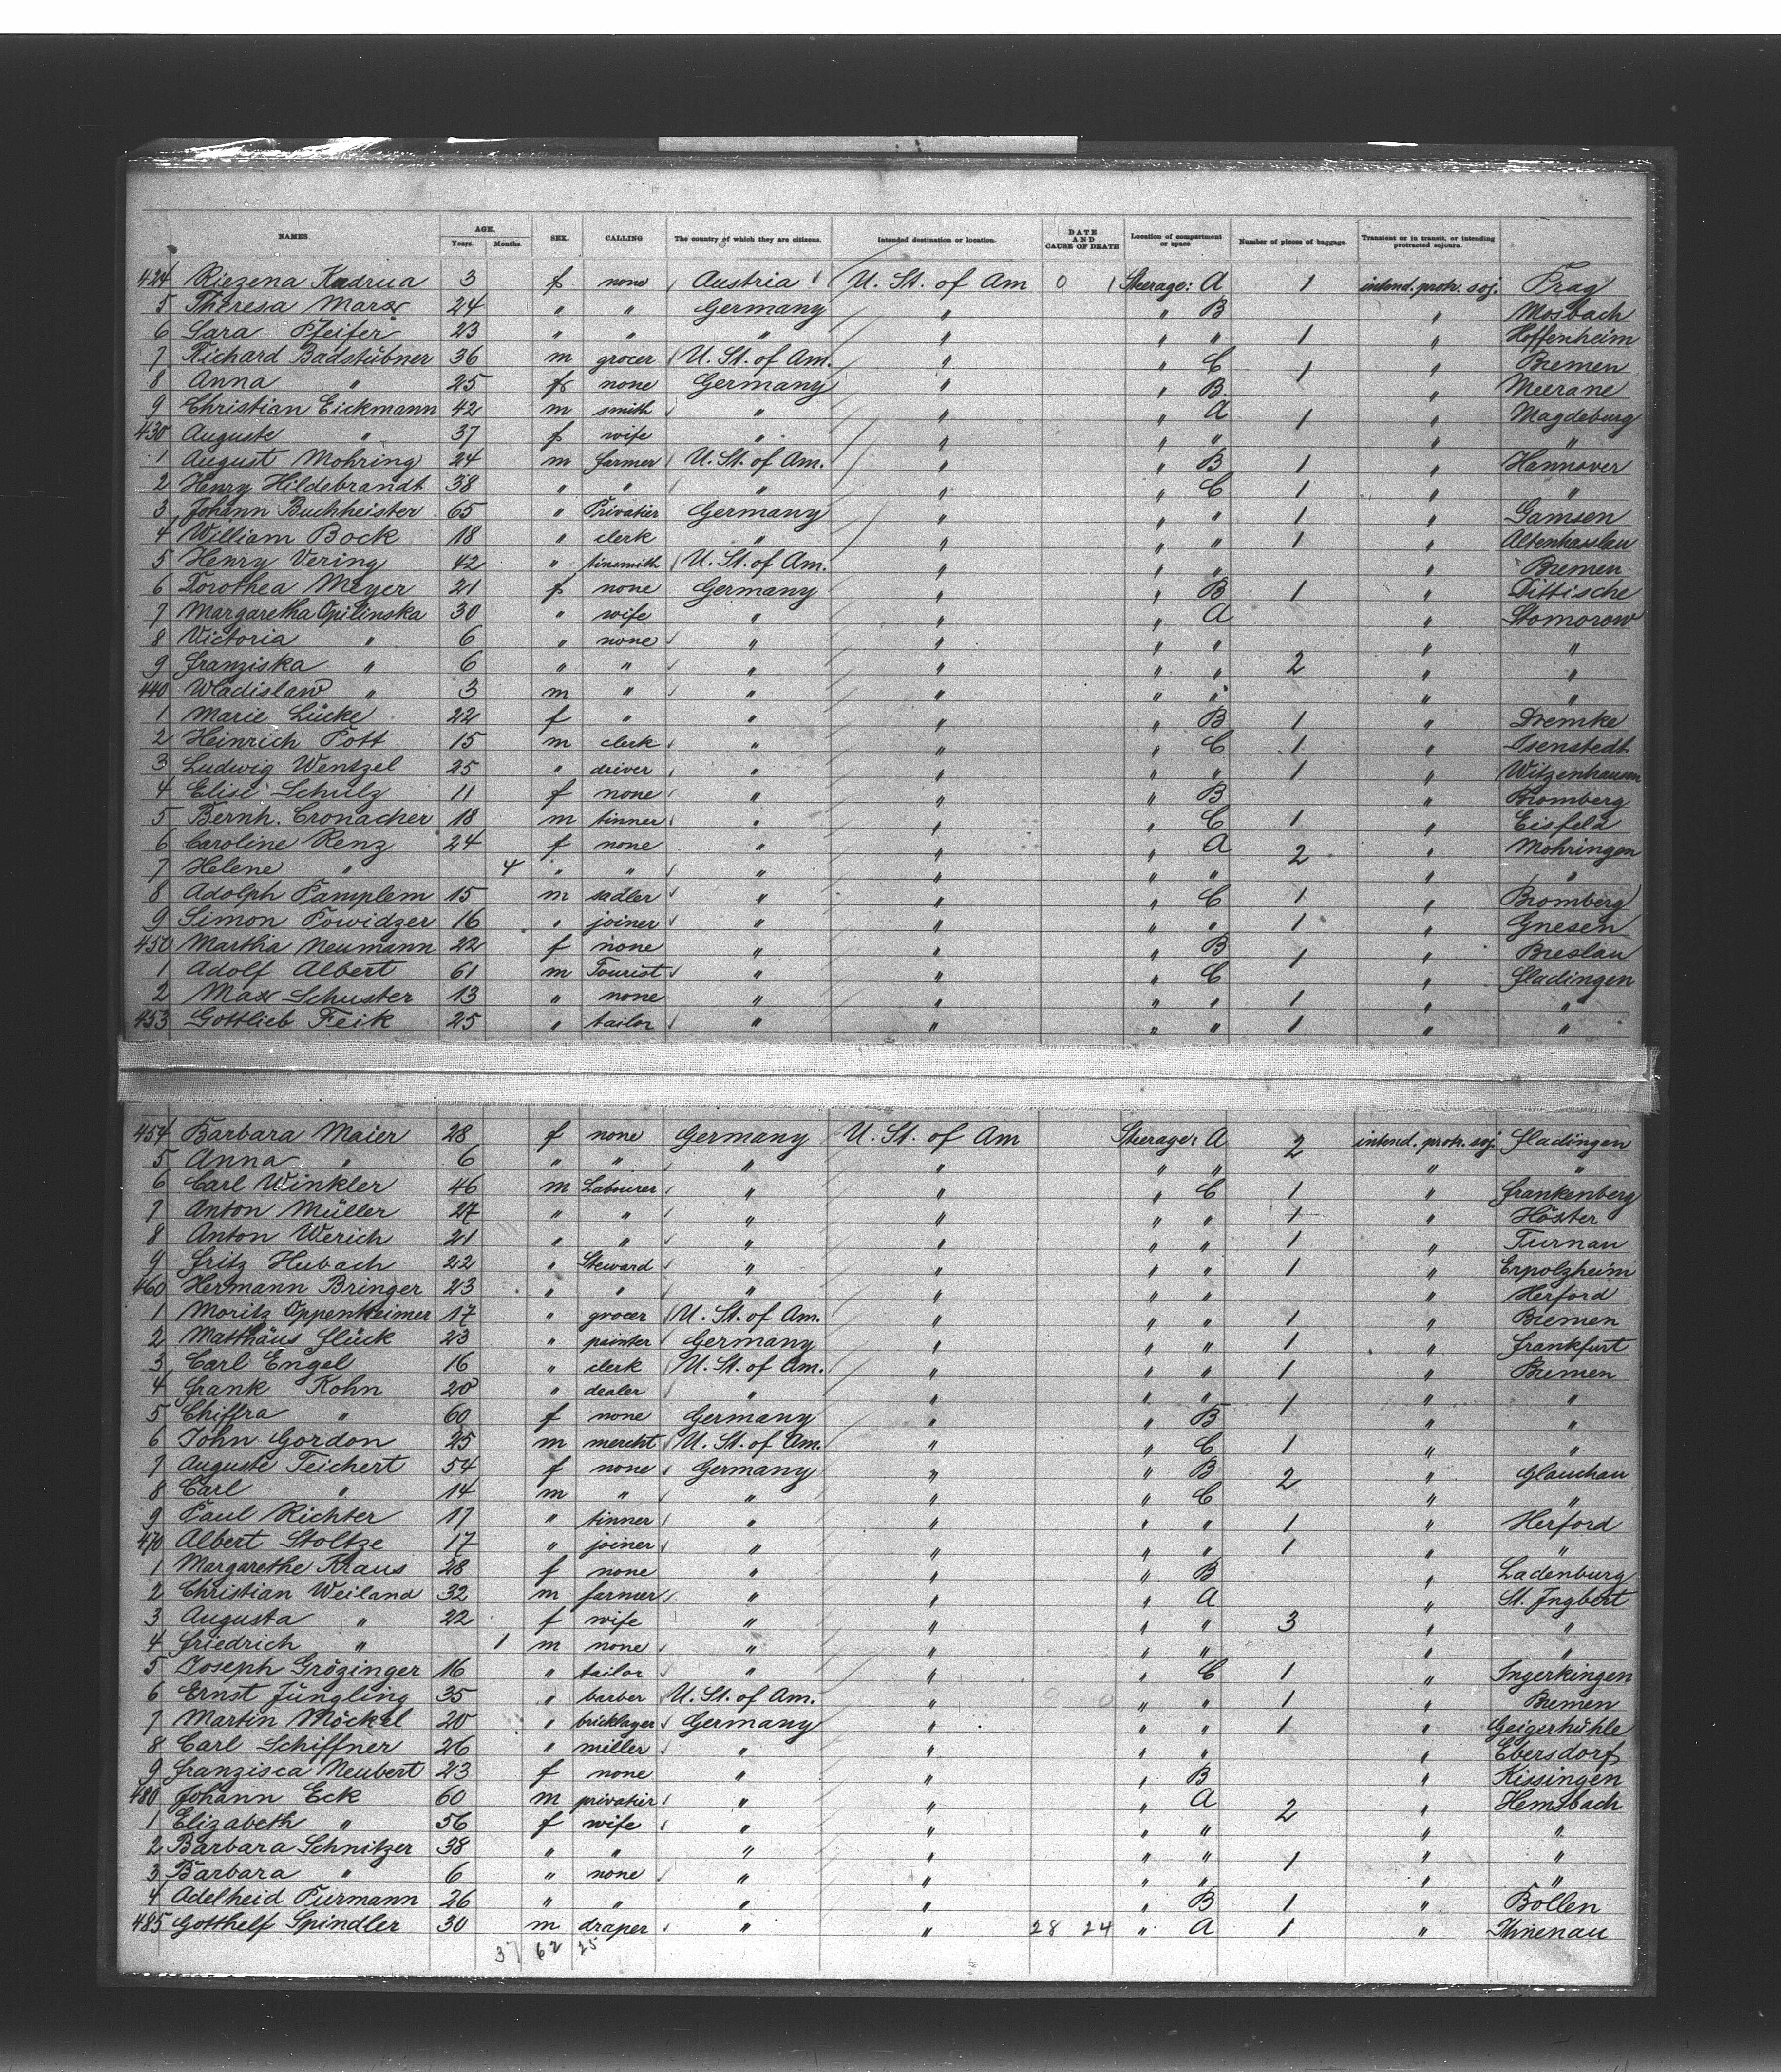 NAMES AGE. Years. Months. SEX. CALLING The country of which they are citizens. Intended destination or location. DATE AND CAUSE OF DEATH Location of compartment or space Number of pieces of baggage. Transient or in transit, or intending protracted sojourn.
424 Riezena Kadrua 3 f none Austria U. St. of Am 0 Steerage: A 1 intend. protr. soj. Prag
5 Theresa Marx 24 " " Germany " " B " Mosbach
6 Sara Pfeifer 23 " " " " " " 1 " Hoffenheim
7 Richard Badstübner 36 m grocer U. St. of Am. " " C 1 " Bremen
8 Anna " 25 f none Germany " " B " Meerane
9 Christian Eickmann 42 m smith " " " A 1 " Magdeburg
430 Auguste " 37 f wife " " " " " "
1 August Mohring 24 m farmer U. St. of Am. " " B 1 " Hannover
2 Henry Hildebrandt 38 " " " " " C 1 " "
3 Johann Buchheister 65 " Privatier Germany " " " 1 " Gamsen
4 William Bock 18 " clerk " " " " 1 " Altenhasslau
5 Henry Vering 42 " tinsmith U. St. of Am. " " " " Bremen
6 Dorothea Meyer 21 f none Germany " " B 1 " Dittische
7 Margaretha Opilinska 30 " wife " " " A " Stomorow
8 Victoria " 6 " none " " " " " "
9 Franziska " 6 " " " " " " 2 " "
440 Wladislaw " 3 m " " " " " " "
1 Marie Lücke 22 f " " " " B 1 " Dremke
2 Heinrich Pott 15 m clerk " " " C 1 " Isenstedt
3 Ludwig Wentzel 25 " driver " " " " 1 " Witzenhausen
4 Elise Schulz 11 f none " " " B " Bromberg
5 Bernh. Cronacher 18 m tinner " " " C 1 " Eisfeld
6 Caroline Renz 24 f none " " " A 2 " Möhringen
7 Helene " 4 " " " " " " " "
8 Adolph Pamplem 15 m sadler " " " C 1 " Bromberg
9 Simon Powidzer 16 " joiner " " " " 1 " Gnesen
450 Martha Neumann 22 f none " " " B 1 " Breslau
1 Adolf Albert 61 m Tourist " " " C " Fladingen
2 Max Schuster 13 " none " " " " 1 " "
453 Gottlieb Feik 25 " tailor " " " " 1 " "
454 Barbara Maier 28 f none Germany U. St. of Am Steerage: A 2 intend. protr. soj. Fladingen
5 Anna " 6 " " " " " " " "
6 Carl Winkler 46 m Labourer " " " C 1 " Frankenberg
7 Anton Müller 27 " " " " " " 1 " Höxter
8 Anton Werich 21 " " " " " " 1 " Turnau
9 Fritz Hubach 22 " Steward " " " " 1 " Erpolzheim
460 Hermann Bringer 23 " " " " " " " Herford
1 Moritz Oppenheimer 17 " grocer U. St. of Am. " " " 1 " Bremen
2 Matthäus Glück 23 " painter Germany " " " 1 " Frankfurt
3 Carl Engel 16 " clerk U. St. of Am. " " " 1 " Bremen
4 Frank Kohn 20 " dealer " " " " 1 " "
5 Chiffra " 60 f none Germany " " B " "
6 John Gordon 25 m mercht U. St. of Am. " " C 1 " "
7 Auguste Teichert 54 f none Germany " " B 2 " Glauchau
8 Carl " 14 m " " " " C " "
9 Paul Richter 17 " tinner " " " " 1 " Herford
470 Albert Stoltze 17 " joiner " " " " 1 " "
1 Margarethe Kraus 28 f none " " " B " Ladenburg
2 Christian Weiland 32 m farmer " " " A " St. Ingbert
3 Augusta " 22 f wife " " " " 3 " "
4 Friedrich " 1 m none " " " " " "
5 Joseph Grözinger 16 " tailor " " " C 1 " Ingerkingen
6 Ernst Jüngling 35 " barber U. St. of Am. " " " 1 " Bremen
7 Martin Möckel 20 " bricklayer Germany " " " 1 " Geigerhühle
8 Carl Schiffner 26 " miller " " " " " Ebersdorf
9 Franzisca Neubert 23 f none " " " B " Kissingen
480 Johann Eck 60 m privatier " " " A 2 " Hemsbach
1 Elizabeth " 56 f wife " " " " " "
2 Barbara Schnitzer 38 " " " " " " 1 " "
3 Barbara " 6 " none " " " " " "
4 Adelheid Purmann 26 " " " " " B 1 " Bollen
485 Gotthelf Spindler 30 m draper " " 28 24 " A 1 " Ilmenau
37 62 25